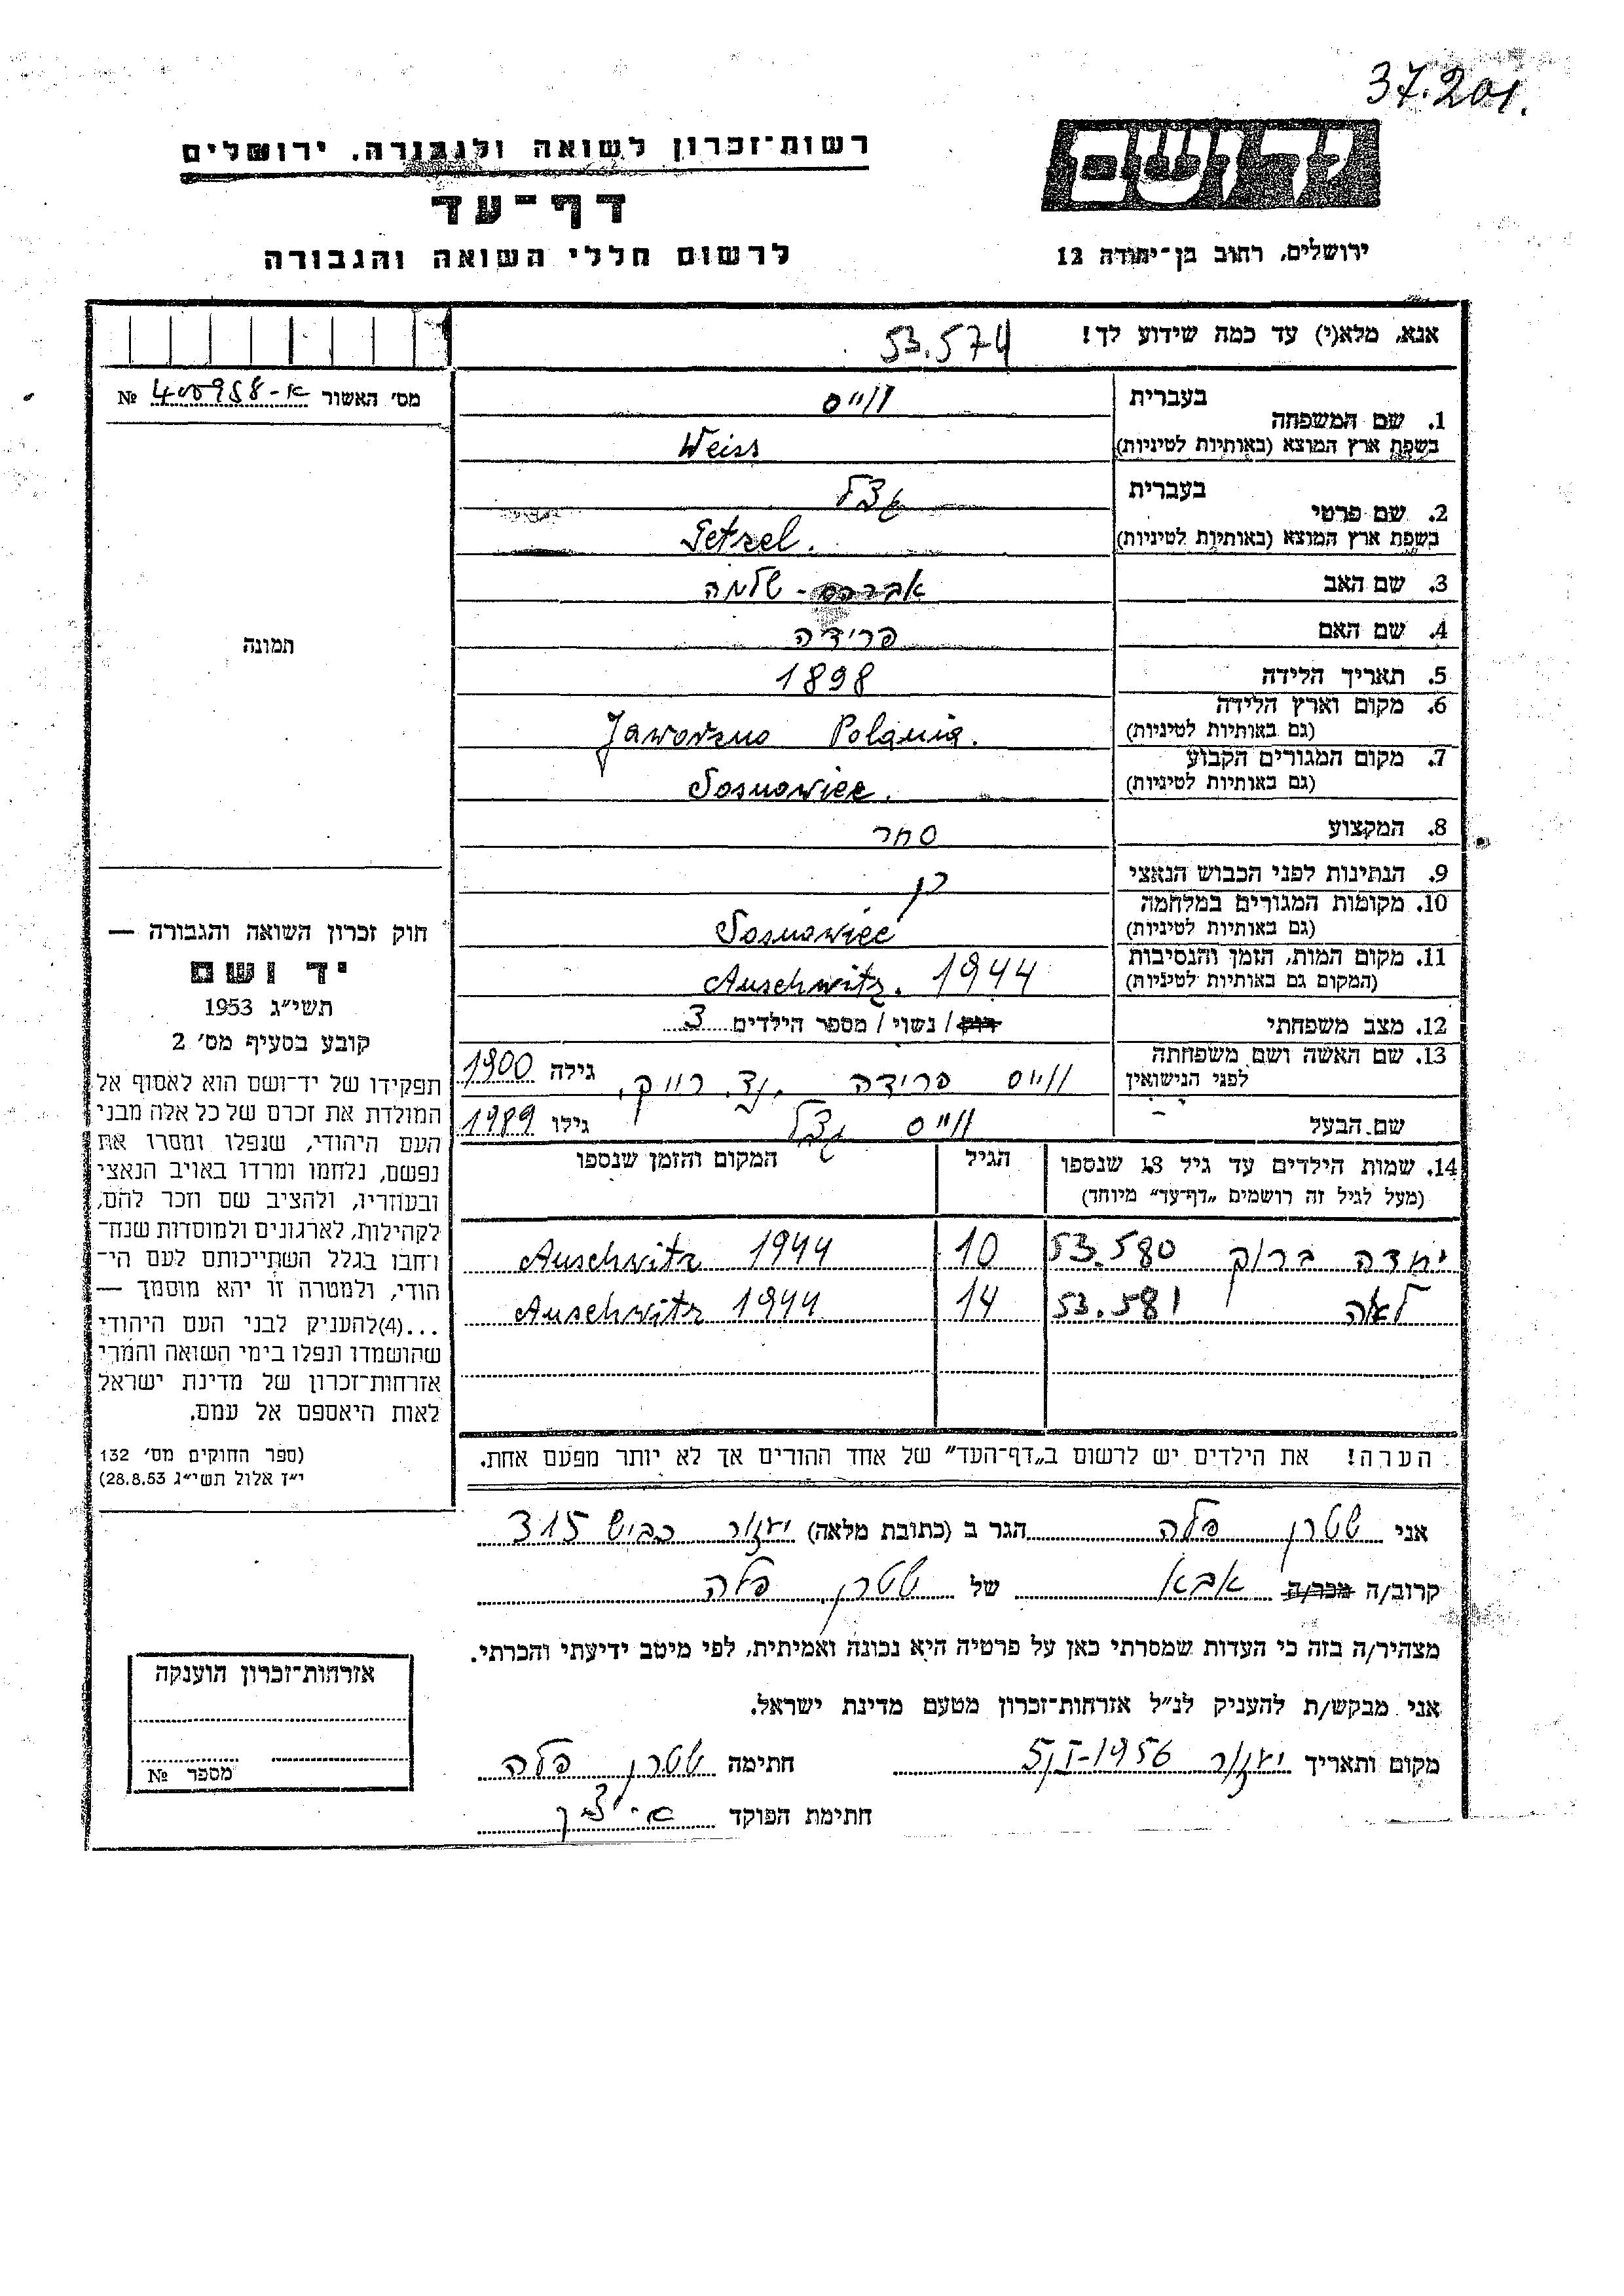 37.201.
רשות־זכרון לשואה ולגבורה. ירושלים
דף־עד
לרשום חללי השואה והגבורה
יד ושם
ירושלים, רחוב בן־יהודה 12
אנא, מלא(י) עד כמה שידוע לך!
53.574
מס׳ האשור א-400958 №
1. שם המשפחה
בעברית ווייס
בשפת ארץ המוצא (באותיות לטיניות) Weiss
2. שם פרטי
בעברית גצל
בשפת ארץ המוצא (באותיות לטיניות) Getzel.
3. שם האב אברהם - שלמה
4. שם האם פרידה
5. תאריך הלידה 1898
6. מקום וארץ הלידה
(גם באותיות לטיניות) Jaworzno Polania.
7. מקום המגורים הקבוע
(גם באותיות לטיניות) Sosnowiec.
8. המקצוע סחר
9. הנתינות לפני הכבוש הנאצי כן
10. מקומות המגורים במלחמה
(גם באותיות לטיניות) Sosnowiec
11. מקום המות, הזמן והנסיבות
(המקום גם באותיות לטיניות) Auschwitz. 1944
12. מצב משפחתי רווק / נשוי / מספר הילדים 3
13. שם האשה ושם משפחתה
לפני הנישואין ווייס פרידה גילה 1900
שם הבעל ווייס גצל גילו 1989
14. שמות הילדים עד גיל 18 שנספו
(מעל לגיל זה רושמים „דף־עד” מיוחד)
הגיל
המקום והזמן שנספו
ברוך 53.580 10 Auschwitz 1944
לאה 53.581 14 Auschwitz 1944
הערה! את הילדים יש לרשום ב„דף־העד” של אחד ההורים אך לא יותר מפעם אחת.
תמונה
חוק זכרון השואה והגבורה —
יד ושם
תשי״ג 1953
קובע בסעיף מס׳ 2
תפקידו של יד־ושם הוא לאסוף אל
המולדת את זכרם של כל אלה מבני
העם היהודי, שנפלו ומסרו את
נפשם, נלחמו ומרדו באויב הנאצי
ובעוזריו, ולהציב שם וזכר להם,
לקהילות, לארגונים ולמוסדות שנח־
רבו בגלל השתייכותם לעם הי־
הודי, ולמטרה זו יהא מוסמך —
...(4)להעניק לבני העם היהודי
שהושמדו ונפלו בימי השואה והמרי
אזרחות־זכרון של מדינת ישראל
לאות היאספם אל עמם.
(ספר החוקים מס׳ 132
י״ז אלול תשי״ג 28.8.53)
אני שטרן פלה הגר ב (כתובת מלאה) יאזור כביש 315
קרוב/ה מכר/ה אבא של שטרן פלה
מצהיר/ה בזה כי העדות שמסרתי כאן על פרטיה היא נכונה ואמיתית, לפי מיטב ידיעתי והכרתי.
אני מבקש/ת להעניק לנ״ל אזרחות־זכרון מטעם מדינת ישראל.
מקום ותאריך יאזור 5/I-1956 חתימה שטרן פלה
חתימת הפוקד
אזרחות־זכרון הוענקה
מספר №